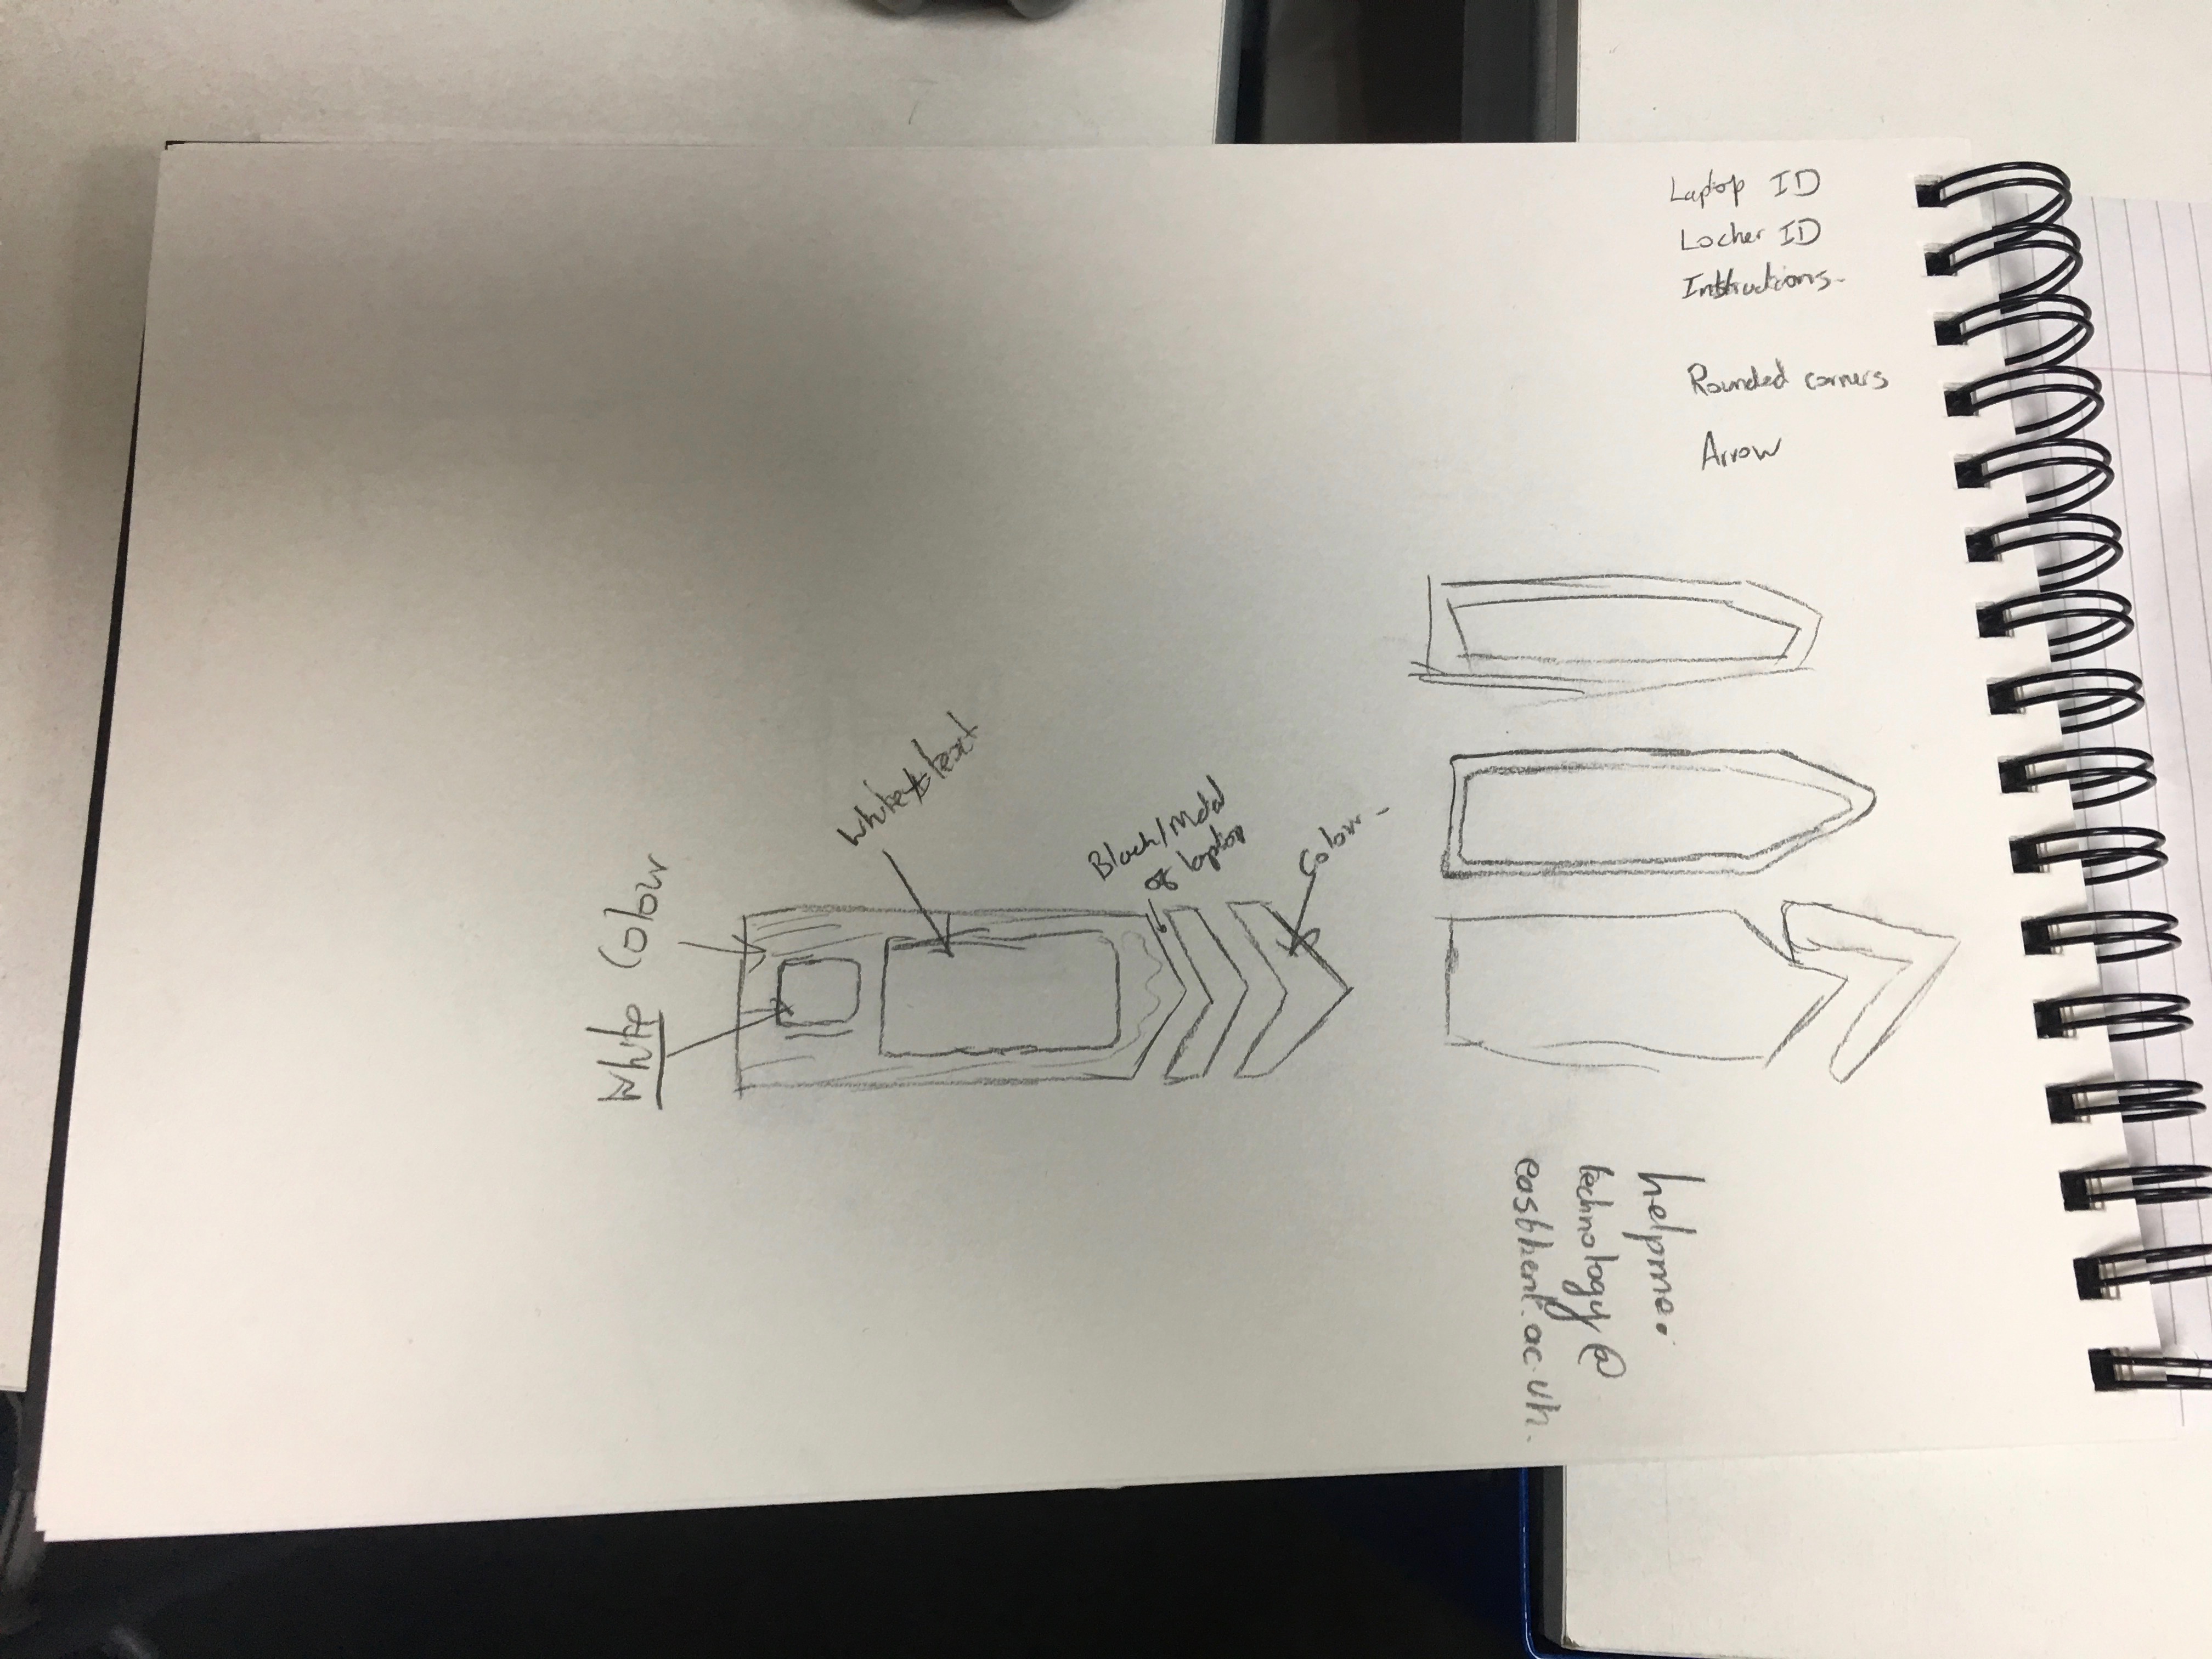 Laptop ID
Locker ID
Instructions.
Rounded corners
Arrow
White & text
Black/Metal
of laptop
Colour.
Colour
White
helpme.
technology@
eastkent.ac.uk.